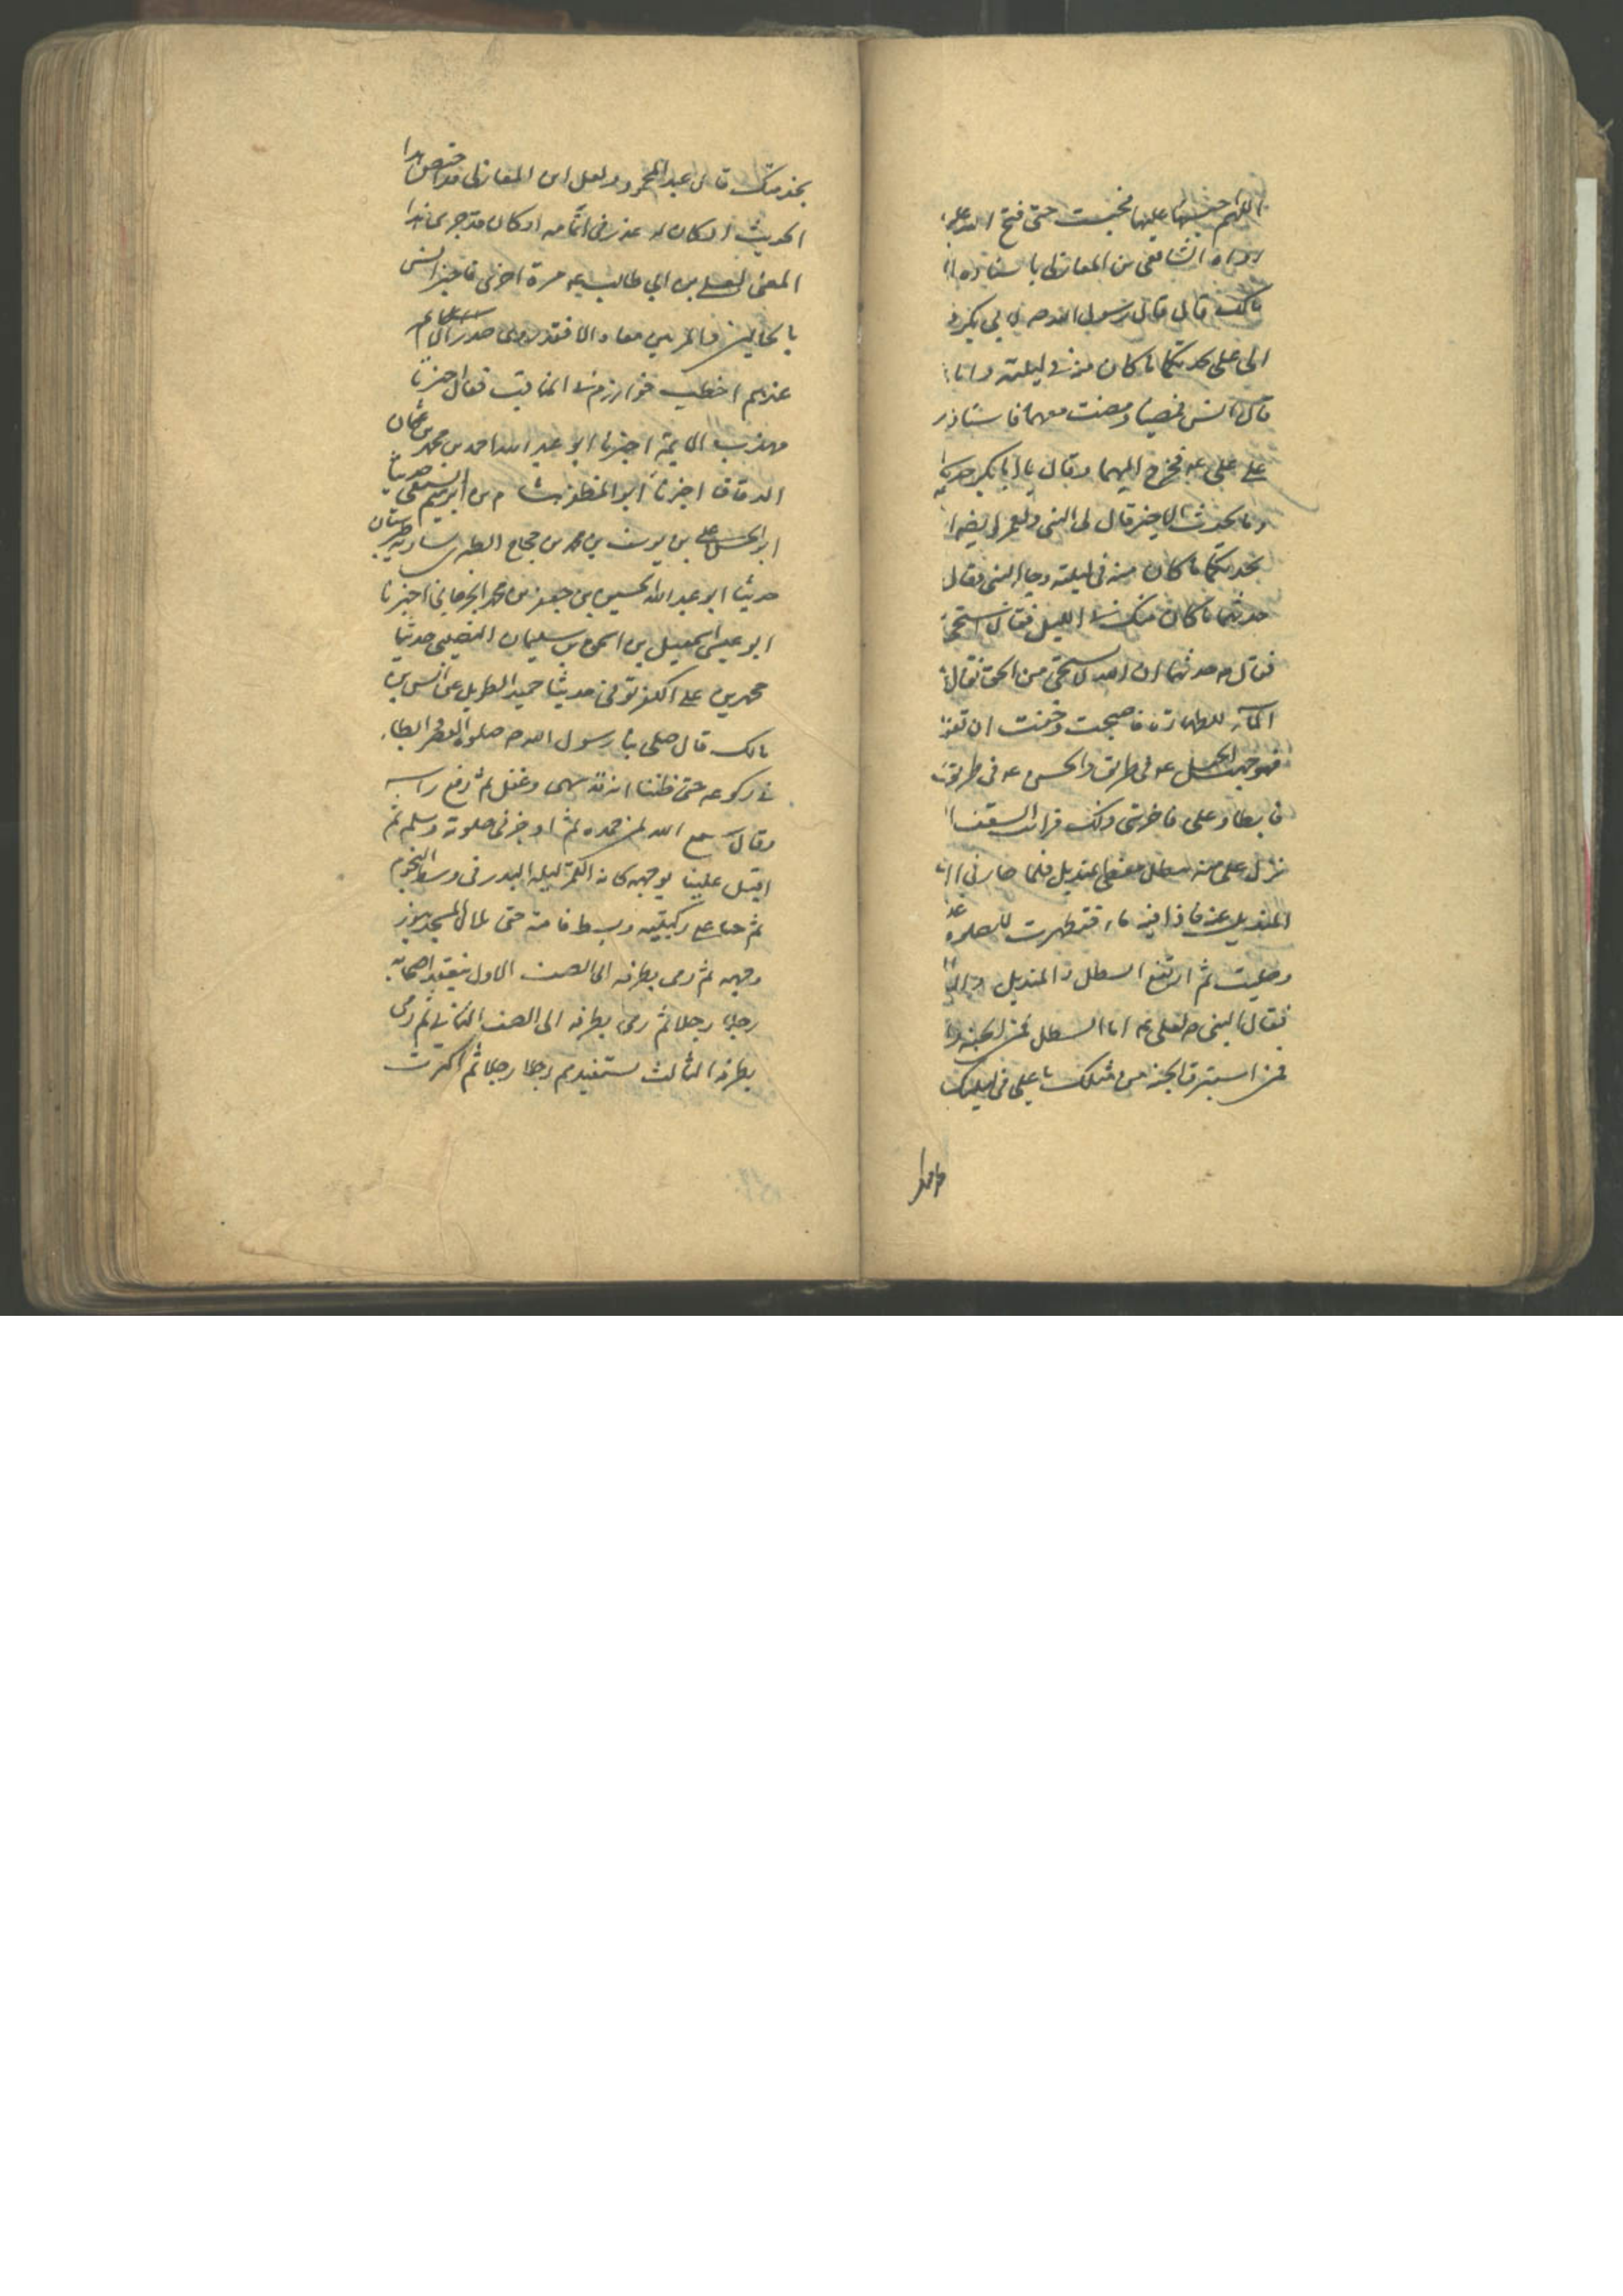 اللهم احبسها علينا فحبست حتى فتح الله عليه
رواه الشافعي بن المغازلي باسناده الى
مالك قال قال رسول الله ص لابي بكر و
الى علي يحدثكما ما كان منه في ليلته وانا
قال انس فمضيا ومضيت معهما فاستاذن
على علي ع فخرج اليهما وقال يا ابا بكر حدث
وما يحدث الا خير قال لي النبي ولعمر امضيا
يحدثكما ما كان منه في ليلته وجاء النبي فقال
حدثهما ما كان منك في الليل فقال استحي
فقال ص حدثهما ان الله لا يستحي من الحق فقال
الماء للطهارة فاصبحت وخفت ان تفوتنا
فوجهت الحسن ع في طريق والحسين ع في طريق
فابطاؤا علي فاحزنني ذلك فرايت السقف
نزل علي منه سطل مغطى بمنديل فلما صار في الا
المنديل عنه فاذا فيه ماء فتطهرت للصلوة
وصليت ثم ارتفع السطل والمنديل وال
فقال النبي ص لعلي ع اما السطل فمن الجنة وا
فمن استبرق الجنة من مثلك يا علي في ليلتك
بخدمتك قال عبد المحمود ولعل ابن المغازلي قد اختصر هذا
الحديث او كان له عذر في اتمامه او كان قد جرى هذا
المعنى لعلي بن ابي طالب ع مرة اخرى فاخبر انس
بالحالين معا والا فقد روى صدر الائمة
عندهم اخطب خوارزم في المناقب فقال اخبرنا
مهذب الائمة اخبرنا ابو عبد الله احمد بن محمد بن عثمان
الدقاق اخبرنا ابو المظفر هناد بن ابرهيم النسفي حدثنا
ابو الحسن علي بن يوسف بن محمد بن حجاج الطبري بسارية طبرستان
حدثنا ابو عبد الله الحسين بن جعفر بن محمد الجرجاني اخبرنا
ابو عيسى اسمعيل بن اسحق بن سليمان النصيبي حدثنا
محمد بن علي الكفرتوثي حدثنا حميد الطويل عن انس بن
مالك قال صلى بنا رسول الله ص صلوة العصر وابطاء
في ركوعه حتى ظننا انه قد سهى وغفل ثم رفع راسه
وقال سمع الله لمن حمده ثم اوجز في صلوته وسلم ثم
اقبل علينا بوجهه كانه القمر ليلة البدر في وسط النجوم
ثم جثا على ركبتيه وبسط قامته حتى تلالا المسجد بنور
وجهه ثم رمى بطرفه الى الصف الاول يتفقد اصحابه
رجلا رجلا ثم رمى بطرفه الى الصف الثاني ثم رمى
بطرفه الثالث يتفقدهم رجلا رجلا ثم اكثرت